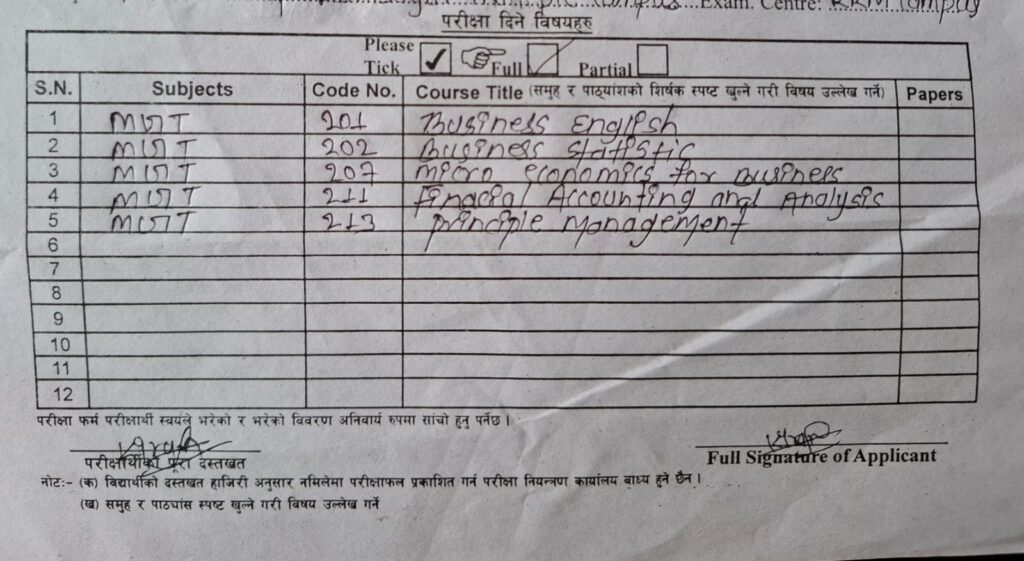 Campus Exam. Centre: RRM Campus
परीक्षा दिने विषयहरु
Please Tick ✓ Full ✓ Partial
S.N. Subjects Code No. Course Title (समुह र पाठ्यांशको शिर्षक स्पष्ट खुल्ने गरी विषय उल्लेख गर्ने) Papers
1 MGT 201 Business English
2 MGT 202 Business statistic
3 MGT 207 micro economics for Business
4 MGT 211 Finacial Accounting and Analysis
5 MGT 213 principle management
6
7
8
9
10
11
12
परीक्षा फर्म परीक्षार्थी स्वयंले भरेको र भरेको विवरण अनिवार्य रुपमा सांचो हुनु पर्नेछ ।
परीक्षार्थीको पूरा दस्तखत Full Signature of Applicant
नोटः- (क) विद्यार्थीको दस्तखत हाजिरी अनुसार नमिलेमा परीक्षाफल प्रकाशित गर्न परीक्षा नियन्त्रण कार्यालय बाध्य हुने छैन् ।
(ख) समुह र पाठ्यांस स्पष्ट खुल्ने गरी विषय उल्लेख गर्ने